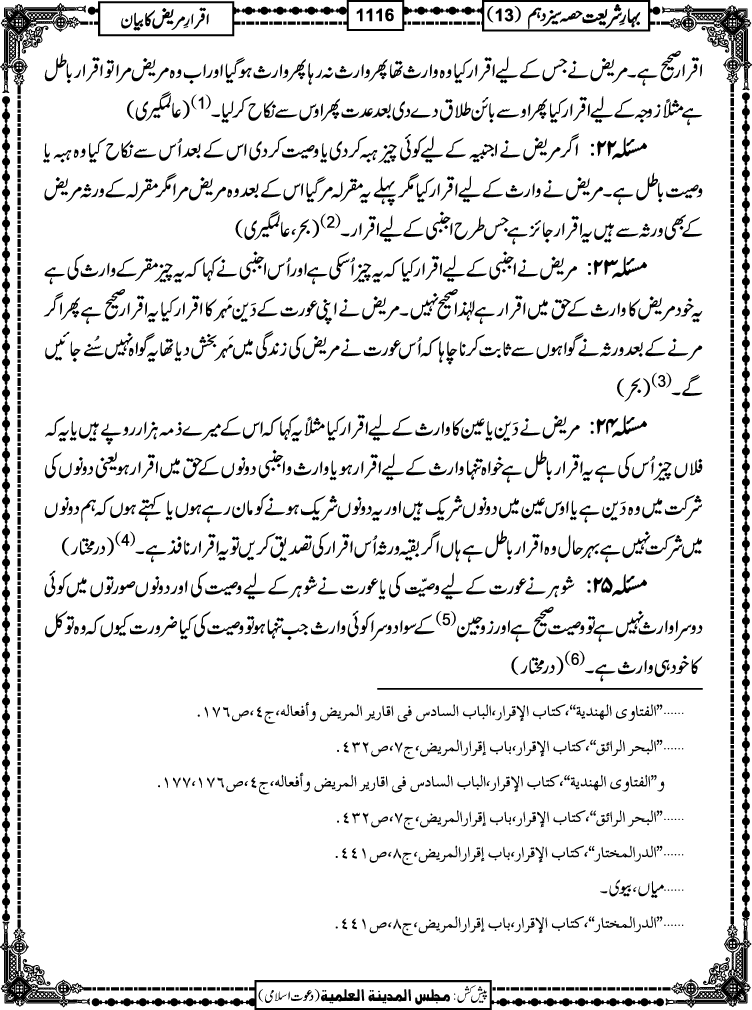 بہارِ شریعت حصہ سیزدہم (13)
1116
اقرارِ مریض کا بیان
اقرار صحیح ہے۔ مریض نے جس کے لیے اقرار کیا وہ وارث تھا پھر وارث نہ رہا پھر وارث ہوگیا اور اب وہ مریض مرا تو اقرار باطل
ہے مثلاً زوجہ کے لیے اقرار کیا پھر اوسے بائن طلاق دے دی بعد عدت پھر اوس سے نکاح کرلیا۔(1) (عالمگیری)
مسئلہ ۲۲: اگر مریض نے اجنبیہ کے لیے کوئی چیز ہبہ کردی یا وصیت کردی اس کے بعد اُس سے نکاح کیا وہ ہبہ یا
وصیت باطل ہے۔ مریض نے وارث کے لیے اقرار کیا مگر پہلے یہ مقرلہ مرگیا اس کے بعد وہ مریض مرا مگر مقرلہ کے ورثہ مریض
کے بھی ورثہ سے ہیں یہ اقرار جائز ہے جس طرح اجنبی کے لیے اقرار۔(2) (بحر، عالمگیری)
مسئلہ ۲۳: مریض نے اجنبی کے لیے اقرار کیا کہ یہ چیز اُسکی ہے اور اُس اجنبی نے کہا کہ یہ چیز مقر کے وارث کی ہے
یہ خود مریض کا وارث کے حق میں اقرار ہے لہٰذا صحیح نہیں۔ مریض نے اپنی عورت کے دَین مَہر کا اقرار کیا یہ اقرار صحیح ہے پھر اگر
مرنے کے بعد ورثہ نے گواہوں سے ثابت کرنا چاہا کہ اُس عورت نے مریض کی زندگی میں مَہر بخش دیا تھا یہ گواہ نہیں سُنے جائیں
گے۔(3) (بحر)
مسئلہ ۲۴: مریض نے دَین یا عین کا وارث کے لیے اقرار کیا مثلاً یہ کہا کہ اس کے میرے ذمہ ہزار روپے ہیں یا یہ کہ
فلاں چیز اُس کی ہے یہ اقرار باطل ہے خواہ تنہا وارث کے لیے اقرار ہو یا وارث و اجنبی دونوں کے حق میں اقرار ہو یعنی دونوں کی
شرکت میں وہ دَین ہے یا اوس عین میں دونوں شریک ہیں اور یہ دونوں شریک ہونے کو مان رہے ہوں یا کہتے ہوں کہ ہم دونوں
میں شرکت نہیں ہے بہرحال وہ اقرار باطل ہے ہاں اگر بقیہ ورثہ اُس اقرار کی تصدیق کریں تو یہ اقرار نافذ ہے۔(4) (درمختار)
مسئلہ ۲۵: شوہر نے عورت کے لیے وصیّت کی یا عورت نے شوہر کے لیے وصیت کی اور دونوں صورتوں میں کوئی
دوسرا وارث نہیں ہے تو وصیت صحیح ہے اور زوجین(5) کے سوا دوسرا کوئی وارث جب تنہا ہو تو وصیت کی کیا ضرورت کیوں کہ وہ تو کل
کا خود ہی وارث ہے۔(6) (درمختار)
......”الفتاوی الهندية“،كتاب الإقرار،الباب السادس فى اقارير المريض وأفعاله،ج٤،ص١٧٦.
......”البحر الرائق“،كتاب الإقرار،باب إقرارالمريض،ج٧،ص٤٣٢.
و ”الفتاوی الهندية“،كتاب الإقرار،الباب السادس فى اقارير المريض وأفعاله،ج٤،ص١٧٦،١٧٧.
......”البحر الرائق“،كتاب الإقرار،باب إقرارالمريض،ج٧،ص٤٣٢.
......”الدرالمختار“،كتاب الإقرار،باب إقرارالمريض،ج٨،ص٤٤١.
......میاں، بیوی۔
......”الدرالمختار“،كتاب الإقرار،باب إقرارالمريض،ج٨،ص٤٤١.
پیش کش: مجلس المدینة العلمیة (دعوت اسلامی)